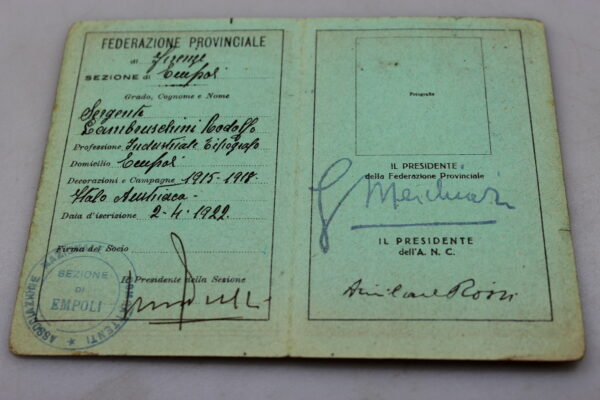 FEDERAZIONE PROVINCIALE
di Firenze
SEZIONE di Empoli
Grado, Cognome e Nome
Sergente
Lambruschini Rodolfo
Professione Industriale Tipografo
Domicilio Empoli
Decorazioni e Campagne 1915-1918
Italo Austriaca
Data d'iscrizione 2-4-1922
Firma del Socio
Il Presidente della Sezione
ASSOCIAZIONE
SEZIONE
DI
EMPOLI
Fotografia
IL PRESIDENTE
della Federazione Provinciale
IL PRESIDENTE
dell'A. N. C.